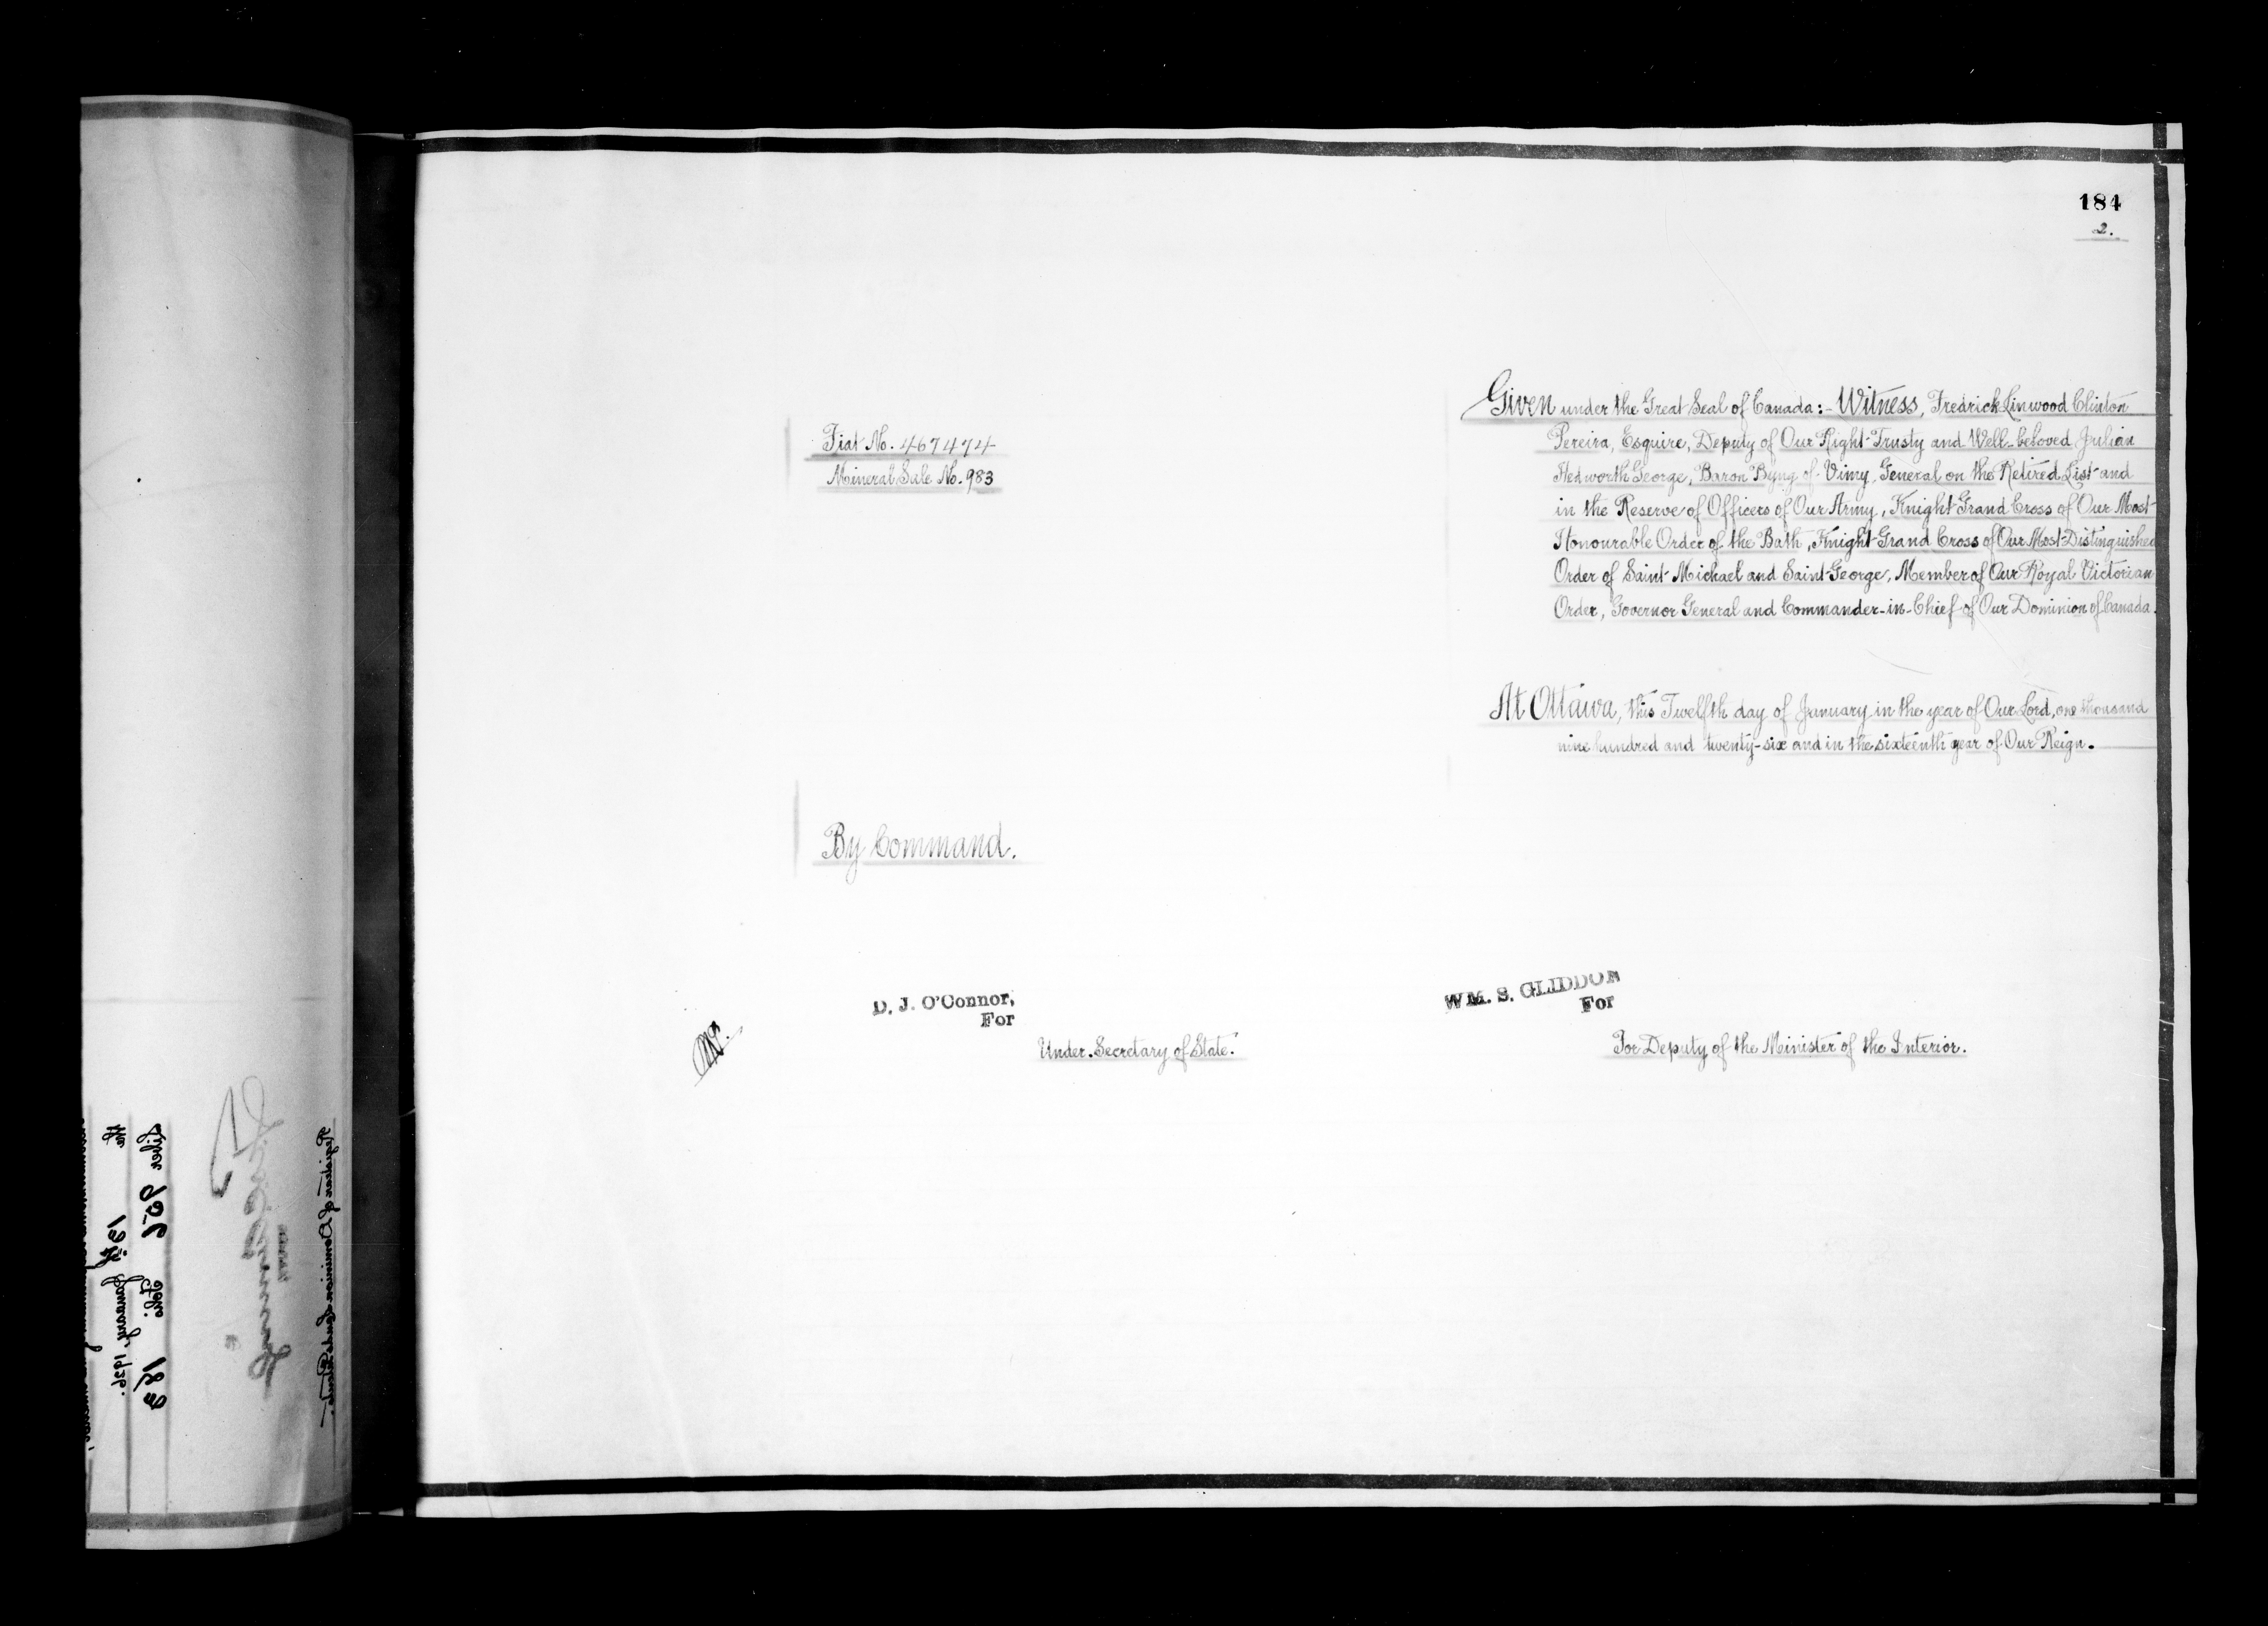 184
2.
Given under the Great Seal of Canada:- Witness, Fredrick Linwood Clinton
Pereira, Esquire, Deputy of Our Right Trusty and Well-beloved Julian
Hedworth George, Baron Byng of Vimy, General on the Retired List and
in the Reserve of Officers of Our Army, Knight Grand Cross of Our Most
Honourable Order of the Bath, Knight Grand Cross of Our Most Distinguished
Order of Saint Michael and Saint George, Member of Our Royal Victorian
Order, Governor General and Commander-in-Chief of Our Dominion of Canada.
Fiat No. 467474
Mineral Sale No. 983
At Ottawa, this Twelfth day of January in the year of Our Lord, one thousand
nine hundred and twenty-six and in the sixteenth year of Our Reign.
By Command.
D. J. O'Connor,
For
Under-Secretary of State.
WM. S. GLIDDON
For
For Deputy of the Minister of the Interior.
Liber 956 Folio 183
the 13th January, 1926.
Registrar of Dominion Lands Patents.